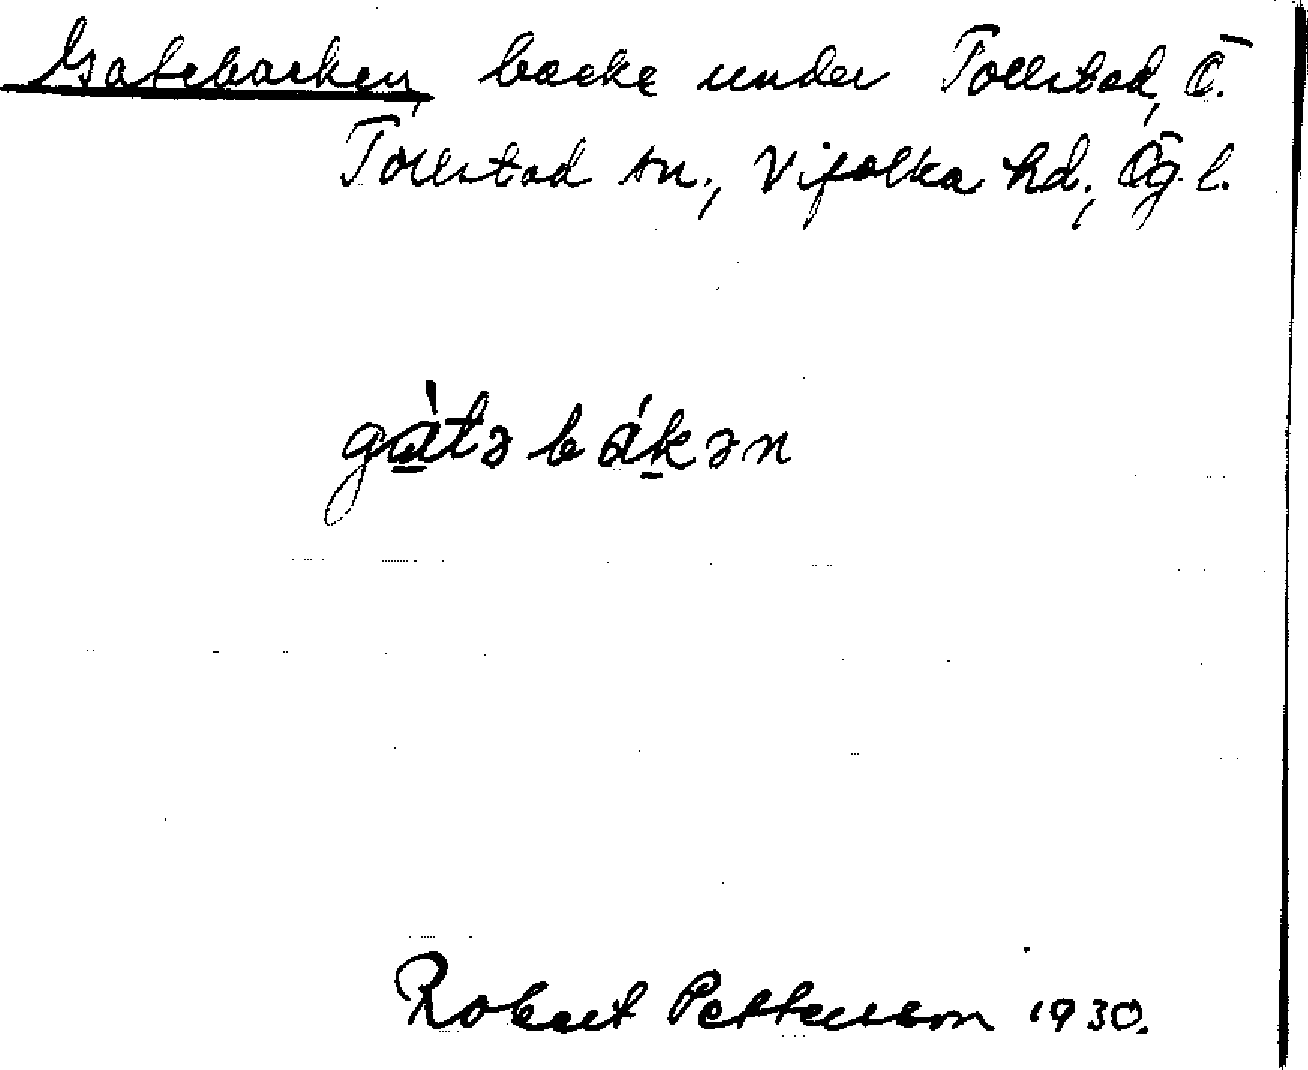 Gatebacken, backe under Tollstad, Ö.
Tollstad sn., Vifolka hd., Ög. l.
gàtəbákən
Robert Petterson 1930.